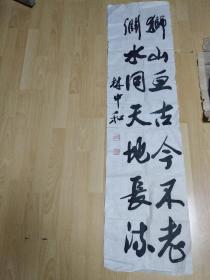 狮山亘古今不老
洲水同天地長流
林中和